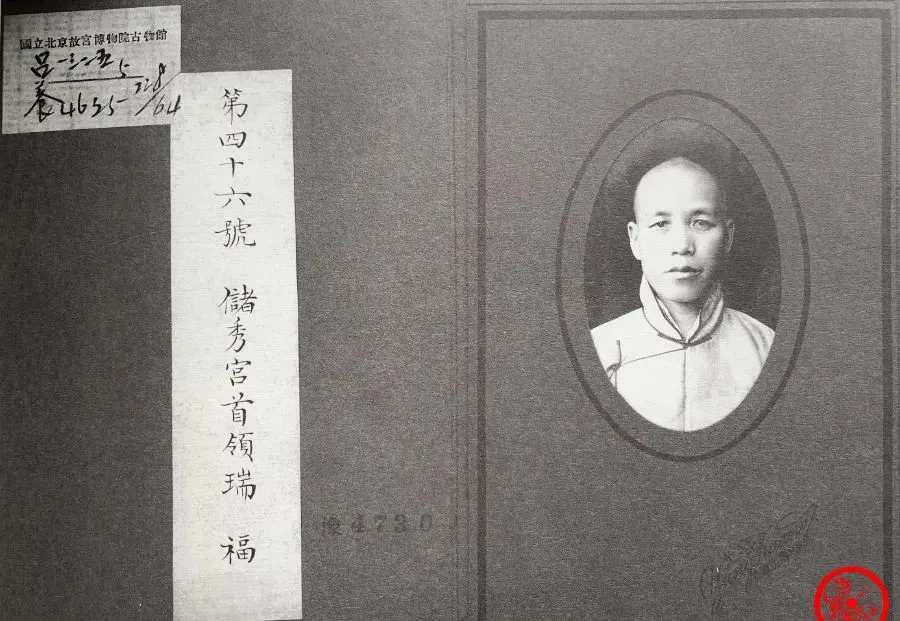 國立北京故宮博物院古物館
呂一三一五 5
養4625 728/64
第四十六號 儲秀宮首領瑞 福
像4730